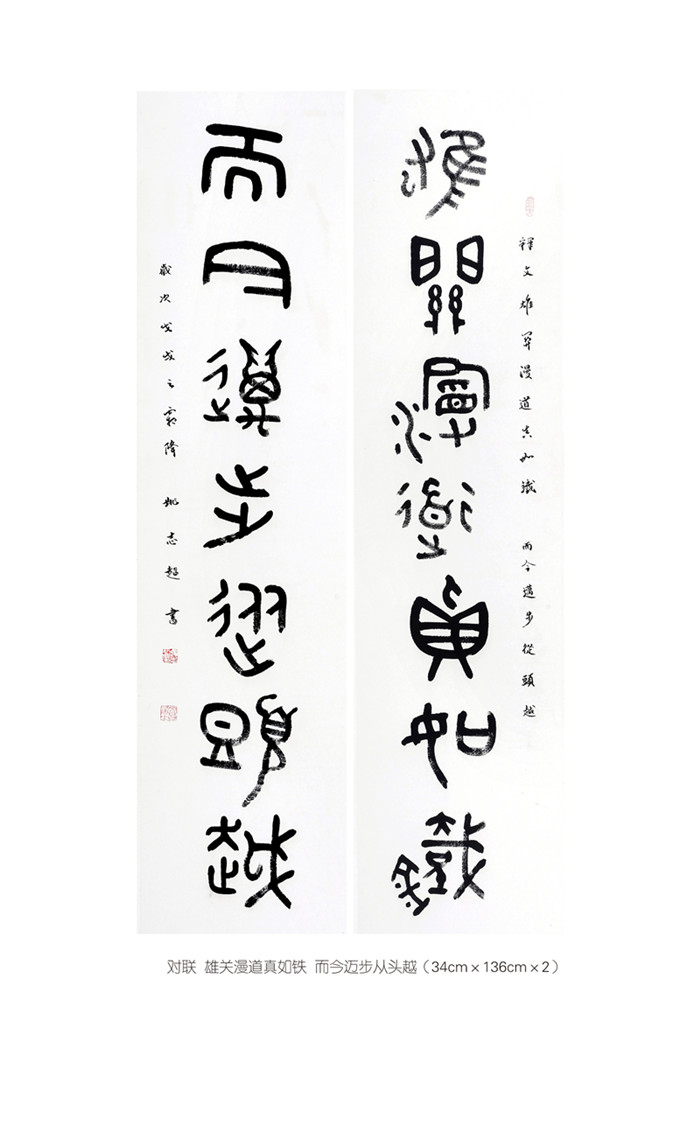 雄關漫道真如鐵
釋文雄關漫道真如鐵 而今邁步從頭越
而今邁步從頭越
歲次戊戌之霜降 姚志超書
对联 雄关漫道真如铁 而今迈步从头越（34cm×136cm×2）